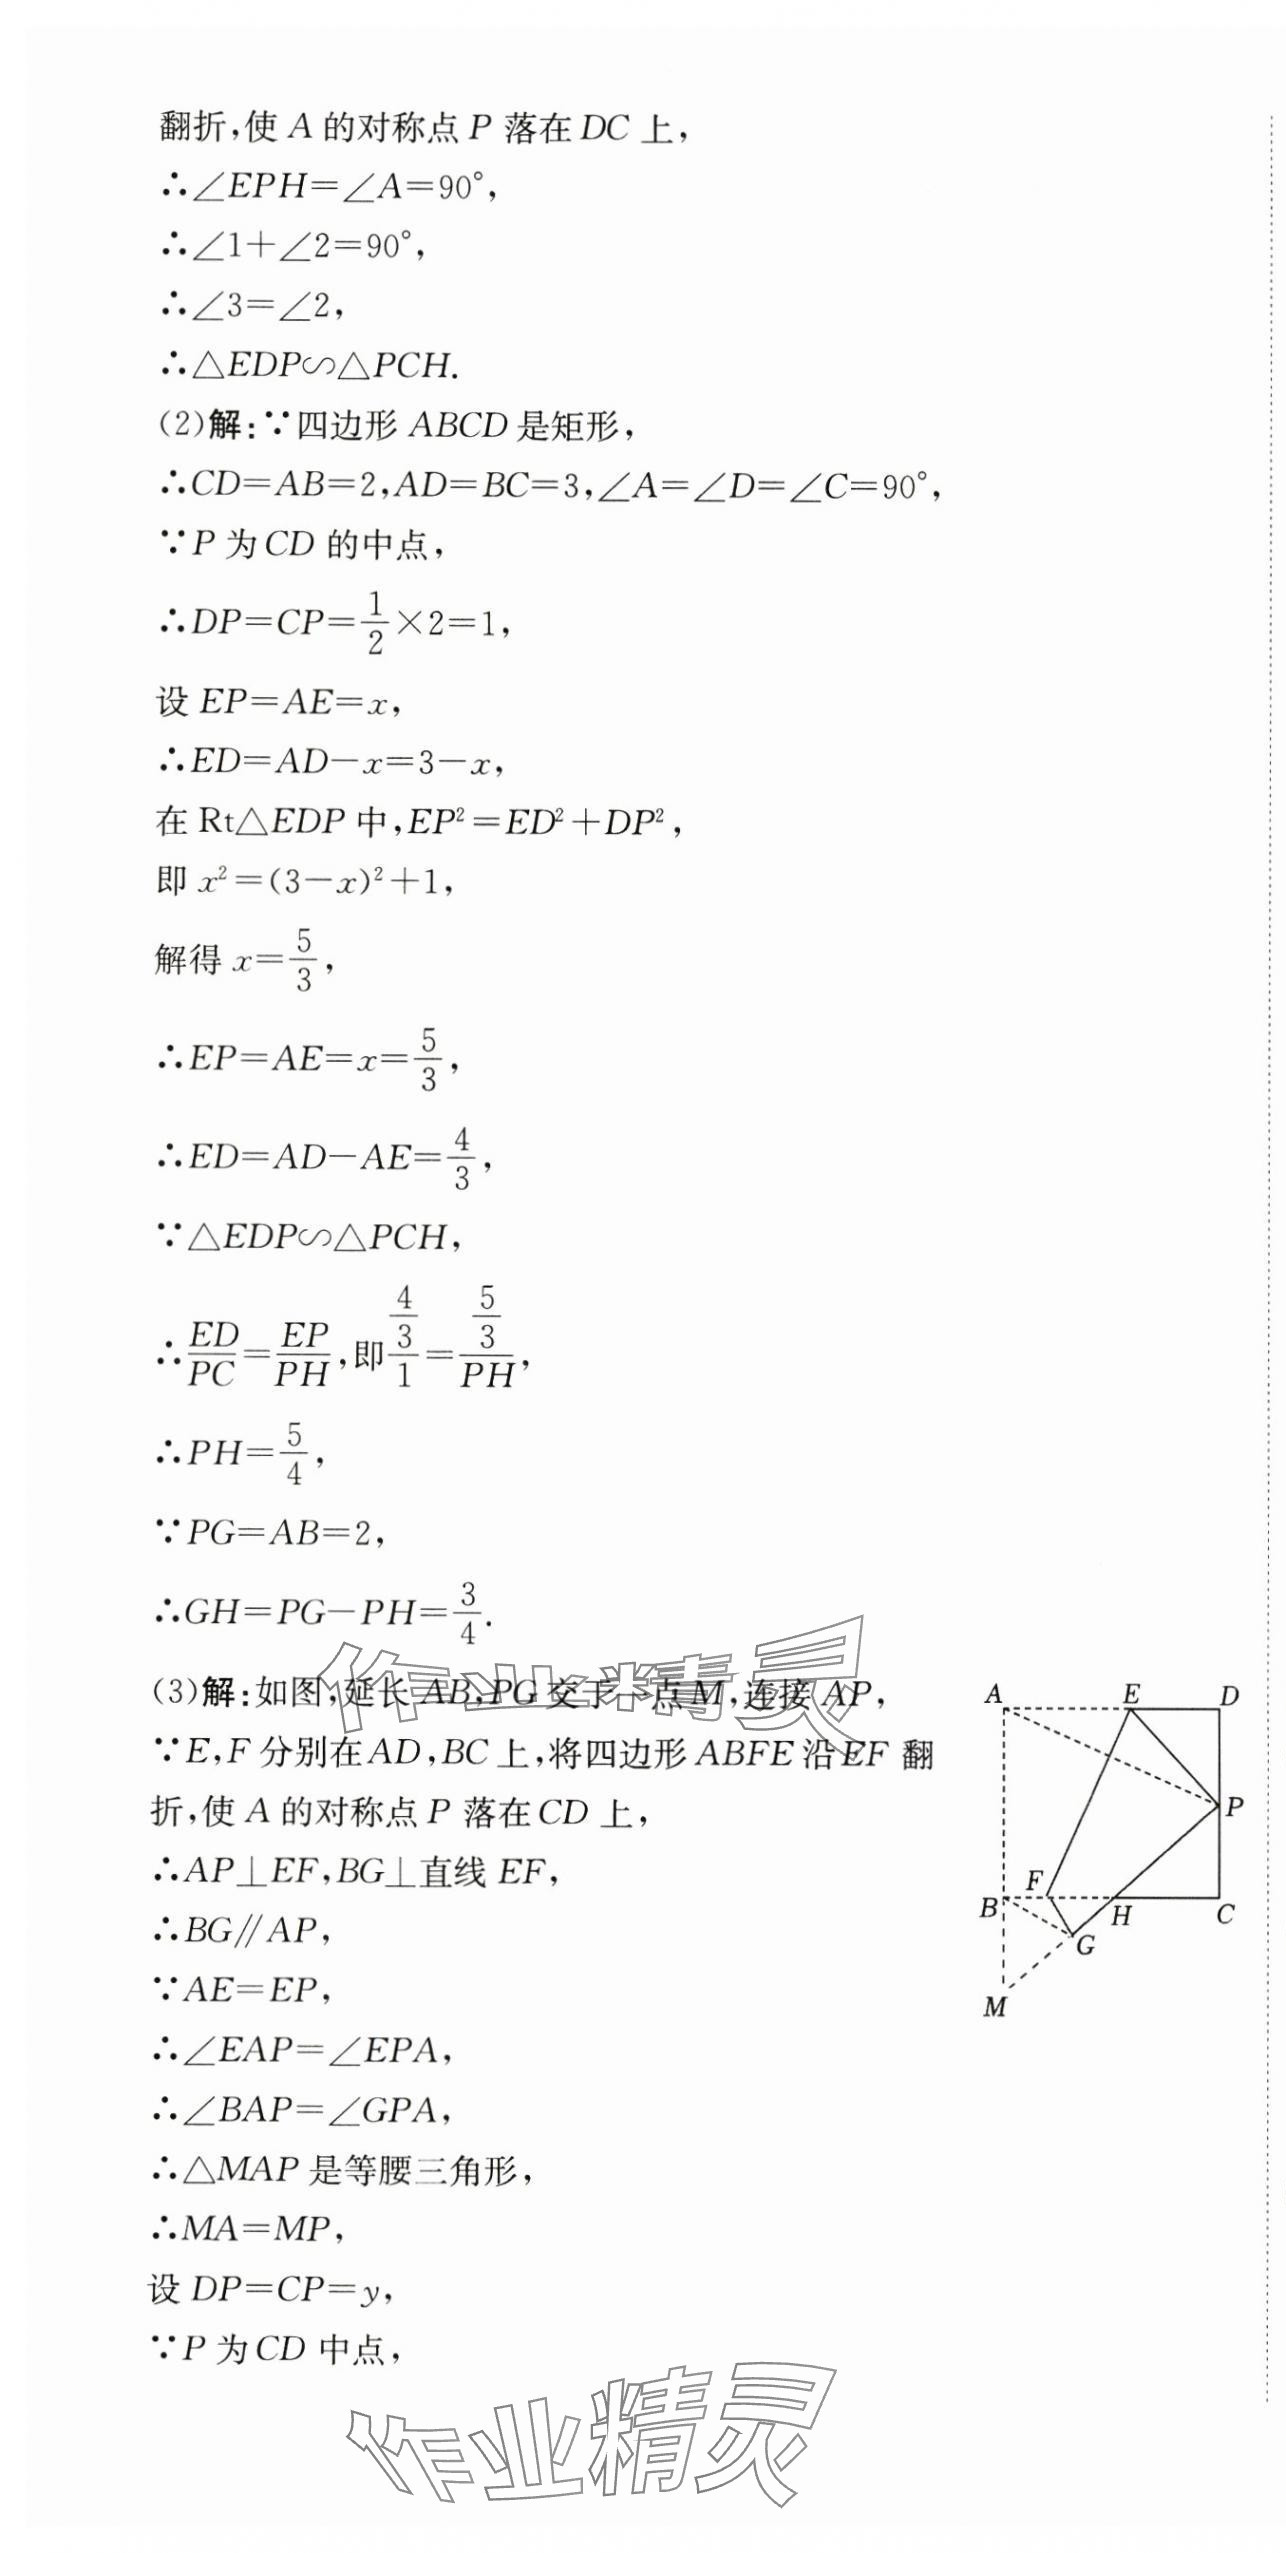 翻折,使 A 的对称点 P 落在 DC 上,
∴∠EPH=∠A=90°,
∴∠1+∠2=90°,
∴∠3=∠2,
∴△EDP∽△PCH.
(2)解:∵四边形 ABCD 是矩形,
∴CD=AB=2,AD=BC=3,∠A=∠D=∠C=90°,
∵P 为 CD 的中点,
∴DP=CP=1/2×2=1,
设 EP=AE=x,
∴ED=AD−x=3−x,
在 Rt△EDP 中,EP²=ED²+DP²,
即 x²=(3−x)²+1,
解得 x=5/3,
∴EP=AE=x=5/3,
∴ED=AD−AE=4/3,
∵△EDP∽△PCH,
∴ED/PC=EP/PH,即(4/3)/1=(5/3)/PH,
∴PH=5/4,
∵PG=AB=2,
∴GH=PG−PH=3/4.
(3)解:如图,延长 AB,PG 交于一点 M,连接 AP,
∵E,F 分别在 AD,BC 上,将四边形 ABFE 沿 EF 翻
折,使 A 的对称点 P 落在 CD 上,
∴AP⊥EF,BG⊥直线 EF,
∴BG∥AP,
∵AE=EP,
∴∠EAP=∠EPA,
∴∠BAP=∠GPA,
∴△MAP 是等腰三角形,
∴MA=MP,
设 DP=CP=y,
∵P 为 CD 中点,
A E D
P
F
B H C
G
M
作业精灵
作业精灵